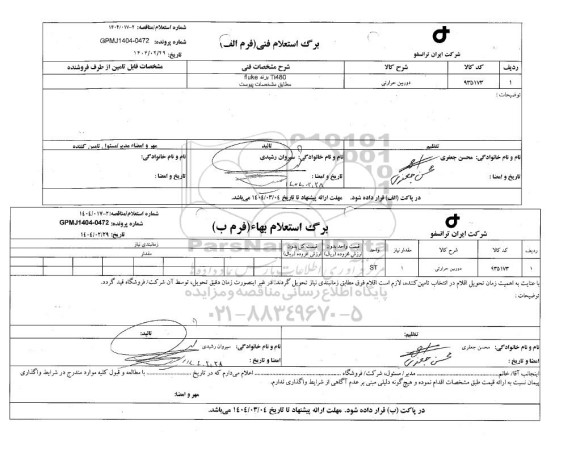 شماره استعلام/مناقصه: ۱۴۰۴/۰۱۷-۲
برگ استعلام فنی(فرم الف)
شماره پرونده: GPMJ1404-0472
تاریخ: ۱۴۰۴/۰۲/۲۹
شرکت ایران ترانسفو
ردیف کد کالا شرح کالا شرح مشخصات فنی مشخصات قابل تامین از طرف فروشنده
۱ ۹۳۵۱۷۳ دوربین حرارتی Ti480 برند fluke
مطابق مشخصات پیوست
توضیحات :
تنظیم تائید مهر و امضاء مدیر/مسئول تامین کننده
نام و نام خانوادگی: محسن جعفری نام و نام خانوادگی: سیروان رشیدی نام و نام خانوادگی:
تاریخ و امضا : تاریخ و امضا : تاریخ و امضا :
در پاکت (الف) قرار داده شود. مهلت ارائه پیشنهاد تا تاریخ ۱۴۰۴/۰۳/۰۴ می‌باشد.
شماره استعلام/مناقصه: ۱۴۰۴/۰۱۷-۲
برگ استعلام بهاء(فرم ب)
شماره پرونده: GPMJ1404-0472
تاریخ: ۱۴۰۴/۰۲/۲۹
شرکت ایران ترانسفو
ردیف کد کالا شرح کالا مقدار نیاز واحد قیمت واحد بدون ارزش افزوده (ریال) قیمت کل بدون ارزش افزوده (ریال) زمانبندی نیاز
مقدار
۱ ۹۳۵۱۷۳ دوربین حرارتی ۱ ST
با عنایت به اهمیت زمان تحویل اقلام در انتخاب تامین کننده، لازم است اقلام فوق مطابق زمانبندی نیاز تحویل گردند. در غیر اینصورت زمان دقیق تحویل، توسط آن شرکت/ فروشگاه قید گردد.
توضیحات :
پایگاه اطلاع رسانی مناقصه و مزایده
۰۲۱-۸۸۳۴۹۶۷۰-۵
تنظیم: تائید:
نام و نام خانوادگی: محسن جعفری نام و نام خانوادگی: سیروان رشیدی
امضا و تاریخ : امضا و تاریخ :
اینجانب آقا/ خانم مدیر/ مسئول، شرکت/ فروشگاه اعلام می‌دارم که در تاریخ با مطالعه و قبول کلیه موارد مندرج در شرایط واگذاری
پیمان نسبت به ارائه قیمت طبق مشخصات اقدام نموده و هیچ‌گونه دلیلی مبنی بر عدم آگاهی از شرایط واگذاری ندارم.
مهر و امضا:
در پاکت (ب) قرار داده شود. مهلت ارائه پیشنهاد تا تاریخ ۱۴۰۴/۰۳/۰۴ می‌باشد.